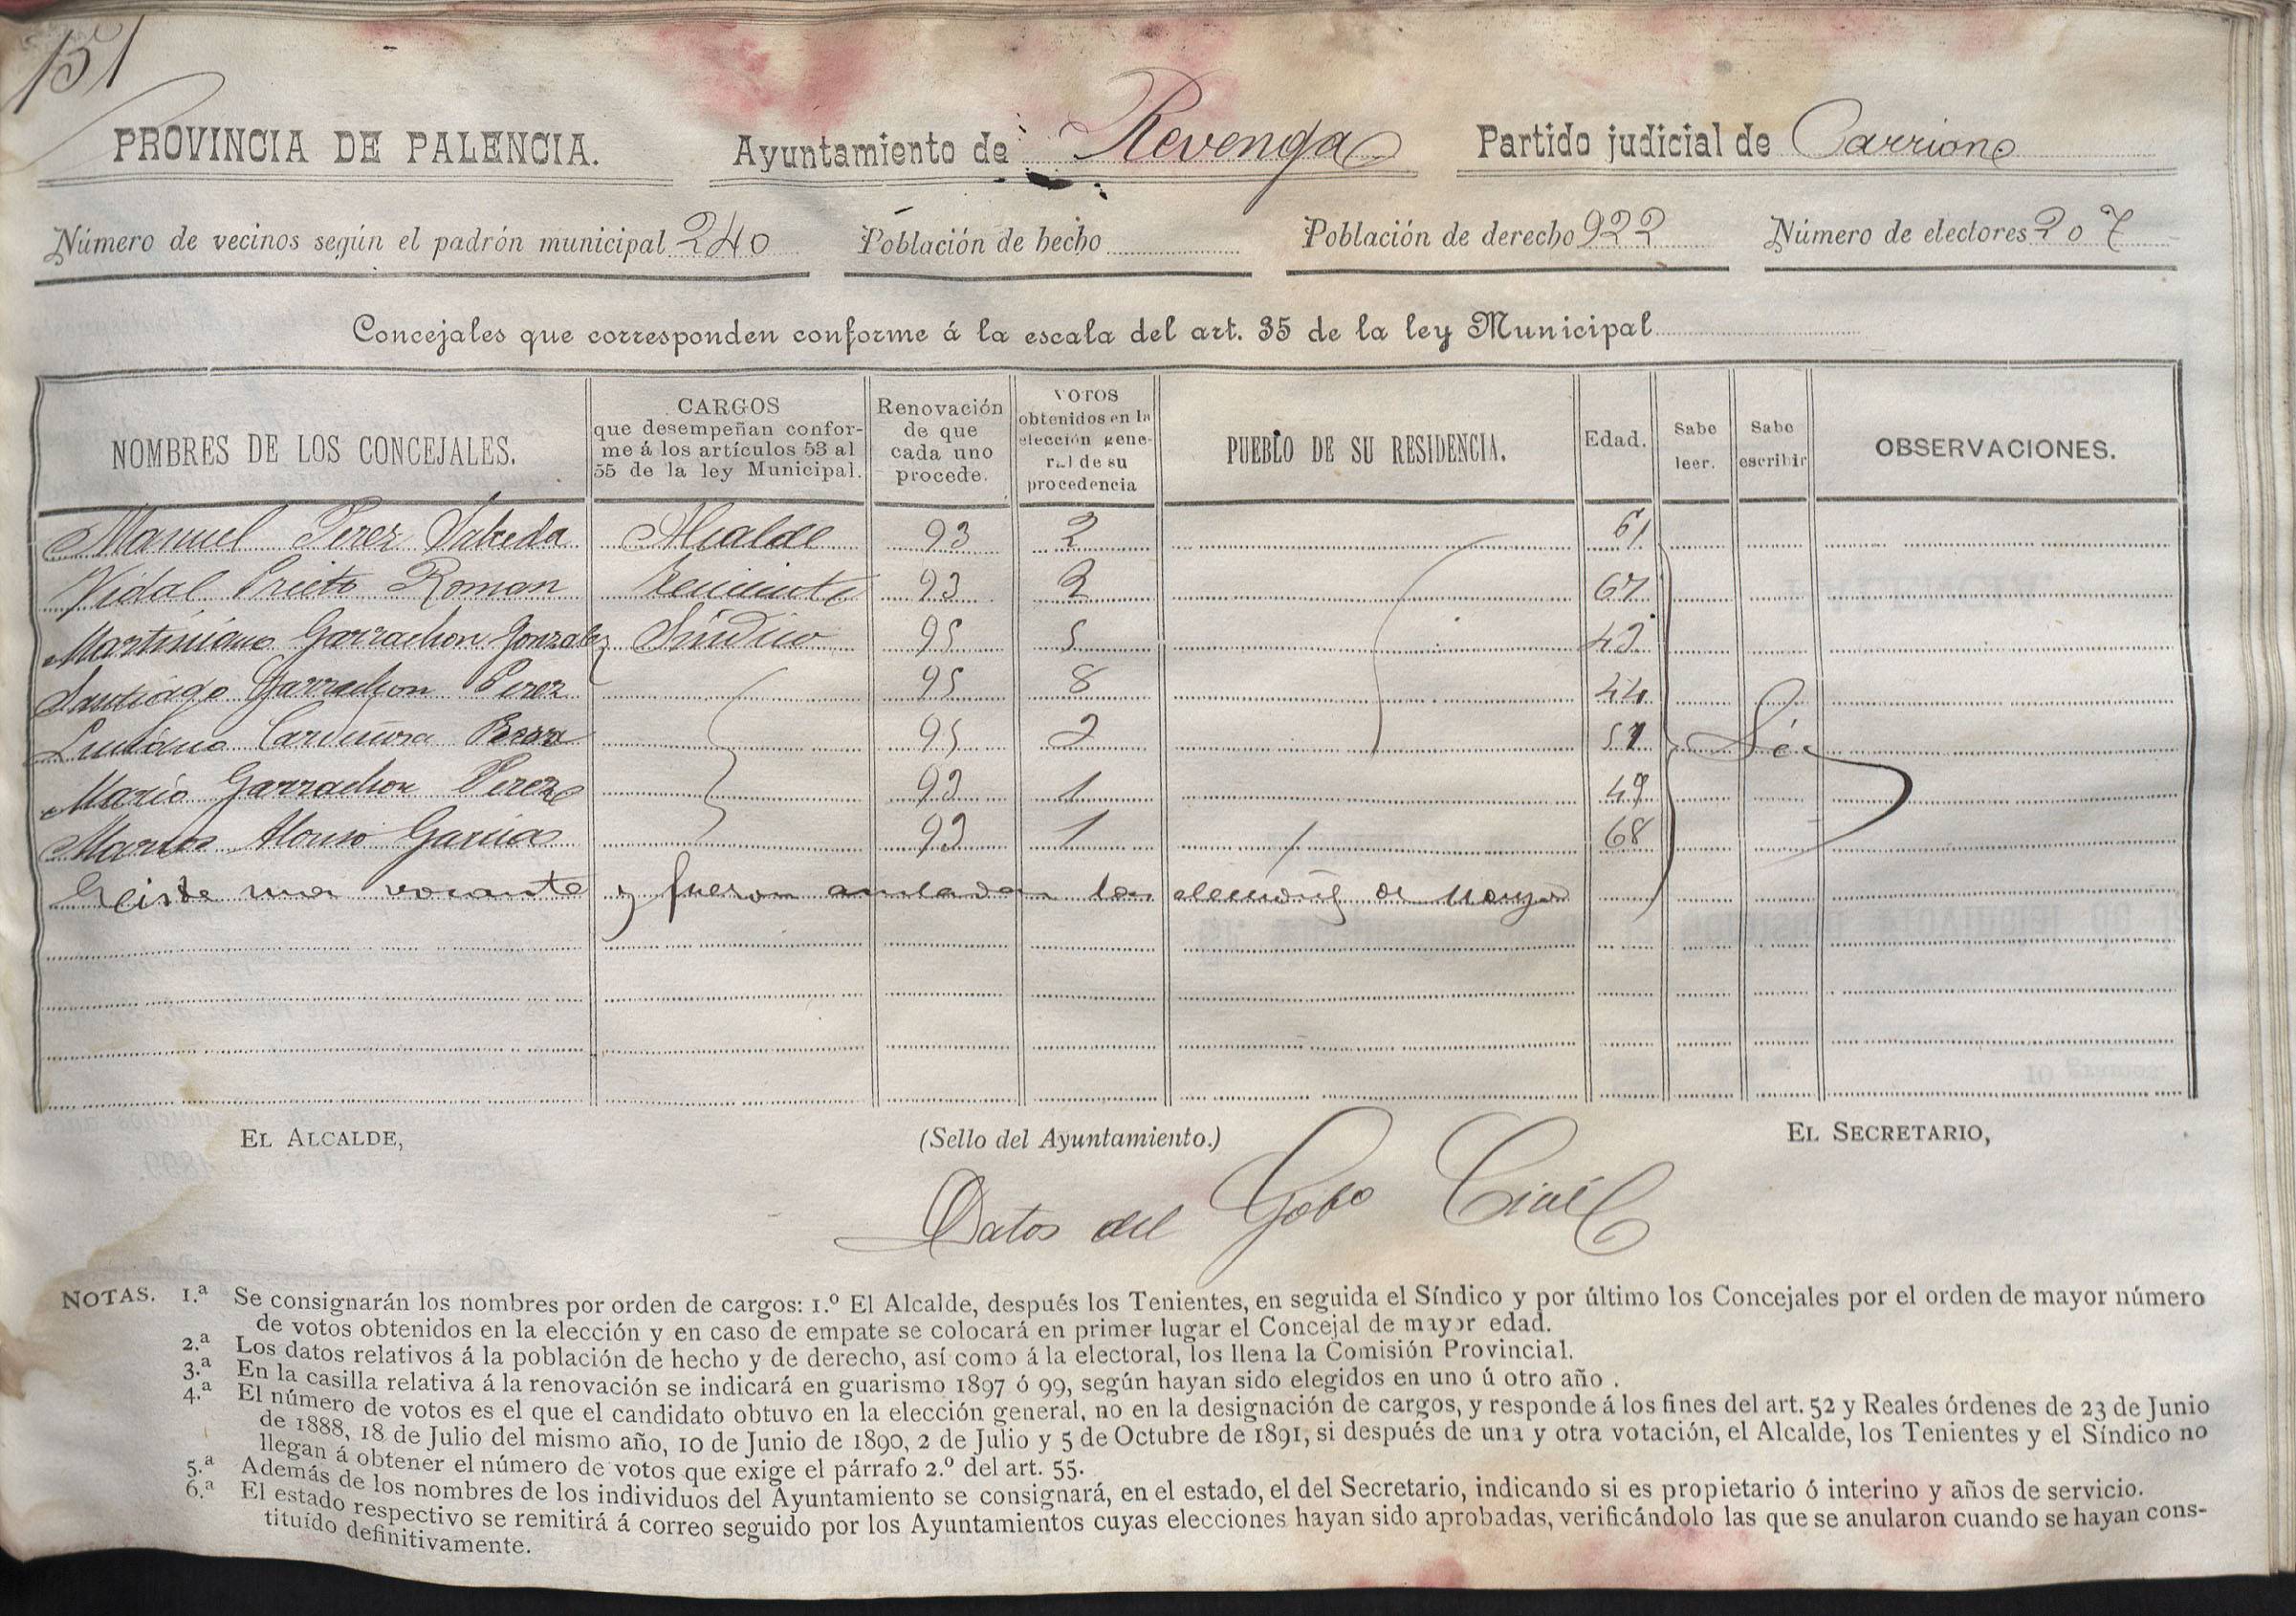 151
PROVINCIA DE PALENCIA. Ayuntamiento de Revenga Partido judicial de Carrion
Número de vecinos según el padrón municipal 240 Población de hecho Población de derecho 922 Número de electores 207
Concejales que corresponden conforme á la escala del art. 35 de la ley Municipal
NOMBRES DE LOS CONCEJALES. CARGOS que desempeñan conforme á los artículos 53 al 55 de la ley Municipal. Renovación de que cada uno procede. VOTOS obtenidos en la elección general de su procedencia PUEBLO DE SU RESIDENCIA. Edad. Sabe leer. Sabe escribir OBSERVACIONES.
Manuel Perez Alcalde 93 2 61
Vidal Prieto Roman Teniente 93 2 67
Martiniano Garrachon Gonzalez Síndico 95 5 43
Santiago Garrachon Perez 95 8 44
Luciano 95 2 Sí
Mario Garrachon Perez 93 1 49
Marcos Alonso Garcia 93 1 68
Existe una vacante y fueron anuladas las elecciones de Mayo
EL ALCALDE, (Sello del Ayuntamiento.) EL SECRETARIO,
Datos del Gobo Civil
NOTAS. 1.ª Se consignarán los nombres por orden de cargos: 1.º El Alcalde, después los Tenientes, en seguida el Síndico y por último los Concejales por el orden de mayor número
de votos obtenidos en la elección y en caso de empate se colocará en primer lugar el Concejal de mayor edad.
2.ª Los datos relativos á la población de hecho y de derecho, así como á la electoral, los llena la Comisión Provincial.
3.ª En la casilla relativa á la renovación se indicará en guarismo 1897 ó 99, según hayan sido elegidos en uno ú otro año.
4.ª El número de votos es el que el candidato obtuvo en la elección general, no en la designación de cargos, y responde á los fines del art. 52 y Reales órdenes de 23 de Junio
de 1888, 18 de Julio del mismo año, 10 de Junio de 1890, 2 de Julio y 5 de Octubre de 1891, si después de una y otra votación, el Alcalde, los Tenientes y el Síndico no
llegan á obtener el número de votos que exige el párrafo 2.º del art. 55.
5.ª Además de los nombres de los individuos del Ayuntamiento se consignará, en el estado, el del Secretario, indicando si es propietario ó interino y años de servicio.
6.ª El estado respectivo se remitirá á correo seguido por los Ayuntamientos cuyas elecciones hayan sido aprobadas, verificándolo las que se anularon cuando se hayan cons-
tituído definitivamente.